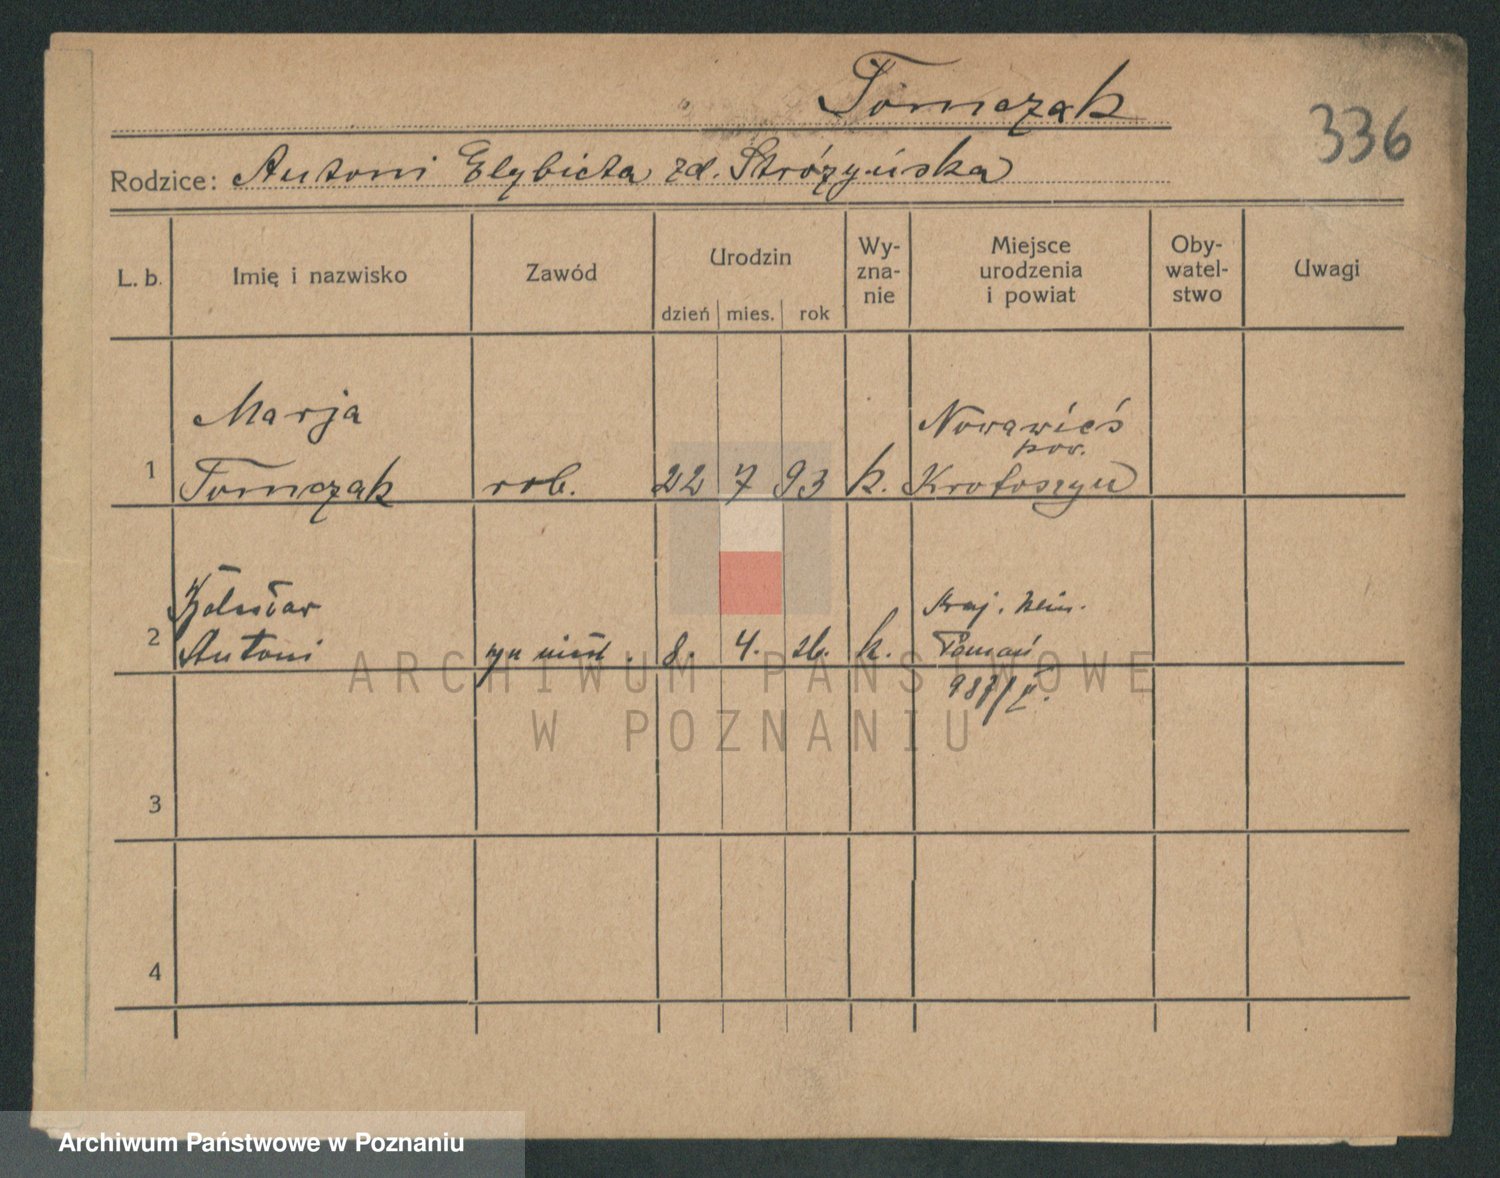 Tomczak
336
Rodzice: Antoni Elżbieta zd. Stróżyńska
L. b.
Imię i nazwisko
Zawód
Urodzin
dzień mies. rok
Wy-
zna-
nie
Miejsce
urodzenia
i powiat
Oby-
watel-
stwo
Uwagi
Marja
Nowawieś
pow.
1 Tomczak rob. 22 7 93 k. Krotoszyn
2 Antoni syn nieśl. 8. 4. 26. k. Poznań
3
4
ARCHIWUM PAŃSTWOWE
W POZNANIU
Archiwum Państwowe w Poznaniu